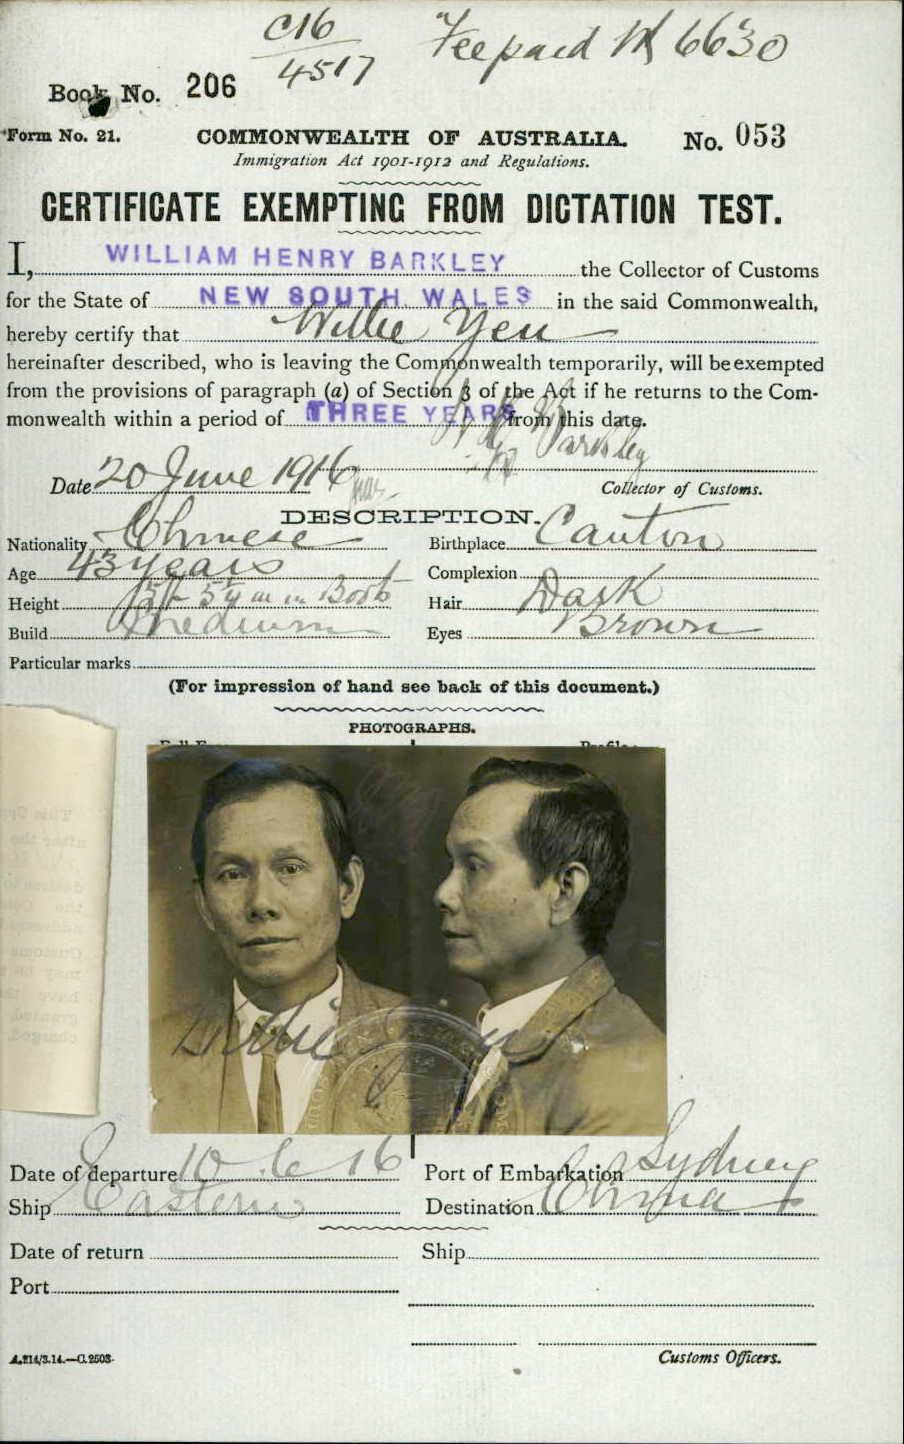 C16
4517
Fee paid 6630
Book No. 206
Form No. 21.
COMMONWEALTH OF AUSTRALIA.
No. 053
Immigration Act 1901-1912 and Regulations.
CERTIFICATE EXEMPTING FROM DICTATION TEST.
I, WILLIAM HENRY BARKLEY the Collector of Customs
for the State of NEW SOUTH WALES in the said Commonwealth,
hereby certify that Willie Yen
hereinafter described, who is leaving the Commonwealth temporarily, will be exempted
from the provisions of paragraph (a) of Section 3 of the Act if he returns to the Com-
monwealth within a period of THREE YEARS from this date.
W H Barkley
Date 20 June 1916
Collector of Customs.
DESCRIPTION.
Nationality Chinese Birthplace Canton
Age 43 years Complexion
Height 5ft 5¼ in in Boots Hair Dark
Build Medium Eyes Brown
Particular marks
(For impression of hand see back of this document.)
PHOTOGRAPHS.
Willie Yen
Date of departure 10.6.16 Port of Embarkation Sydney
Ship Eastern Destination China
Date of return Ship
Port
Customs Officers.
A.214/3.14.—C.2503.